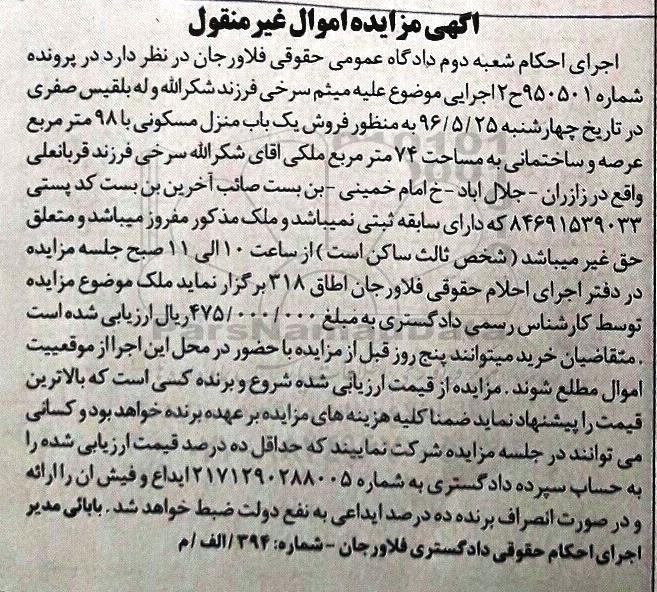 اگهی مزایده اموال غیر منقول
اجرای احکام شعبه دوم دادگاه عمومی حقوقی فلاورجان در نظر دارد در پرونده
شماره ۹۵۰۵۰۱ح۲ اجرایی موضوع علیه میثم سرخی فرزند شکرالله و له بلقیس صفری
در تاریخ چهارشنبه ۹۶/۵/۲۵ به منظور فروش یک باب منزل مسکونی با ۹۸ متر مربع
عرصه و ساختمانی به مساحت ۷۴ متر مربع ملکی اقای شکرالله سرخی فرزند قربانعلی
واقع در زازران - جلال اباد - خ امام خمینی - بن بست صائب آخرین بن بست کد پستی
۸۴۶۹۱۵۳۹۰۳۳ که دارای سابقه ثبتی نمیباشد و ملک مذکور مفروز میباشد و متعلق
حق غیر میباشد ( شخص ثالث ساکن است ) از ساعت ۱۰ الی ۱۱ صبح جلسه مزایده
در دفتر اجرای احلام حقوقی فلاورجان اطاق ۳۱۸ برگزار نماید ملک موضوع مزایده
توسط کارشناس رسمی دادگستری به مبلغ ۴۷۵/۰۰۰/۰۰۰ریال ارزیابی شده است
. متقاضیان خرید میتوانند پنج روز قبل از مزایده با حضور در محل این اجرا از موقعییت
اموال مطلع شوند . مزایده از قیمت ارزیابی شده شروع و برنده کسی است که بالاترین
قیمت را پیشنهاد نماید ضمنا کلیه هزینه های مزایده بر عهده برنده خواهد بود و کسانی
می توانند در جلسه مزایده شرکت نمایند که حداقل ده درصد قیمت ارزیابی شده را
به حساب سپرده دادگستری به شماره ۲۱۷۱۲۹۰۲۸۸۰۰۵ ایداع و فیش ان را ارائه
و در صورت انصراف برنده ده درصد ایداعی به نفع دولت ضبط خواهد شد . بابائی مدیر
اجرای احکام حقوقی دادگستری فلاورجان - شماره: ۳۹۴/الف/م